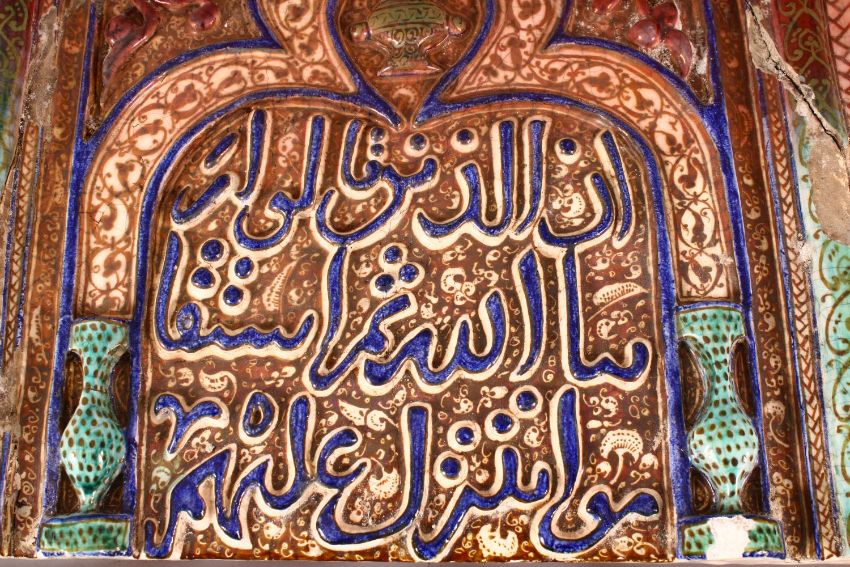 ان الذين قالوا ر
بنا الله ثم استقا
موا تتنزل عليهم